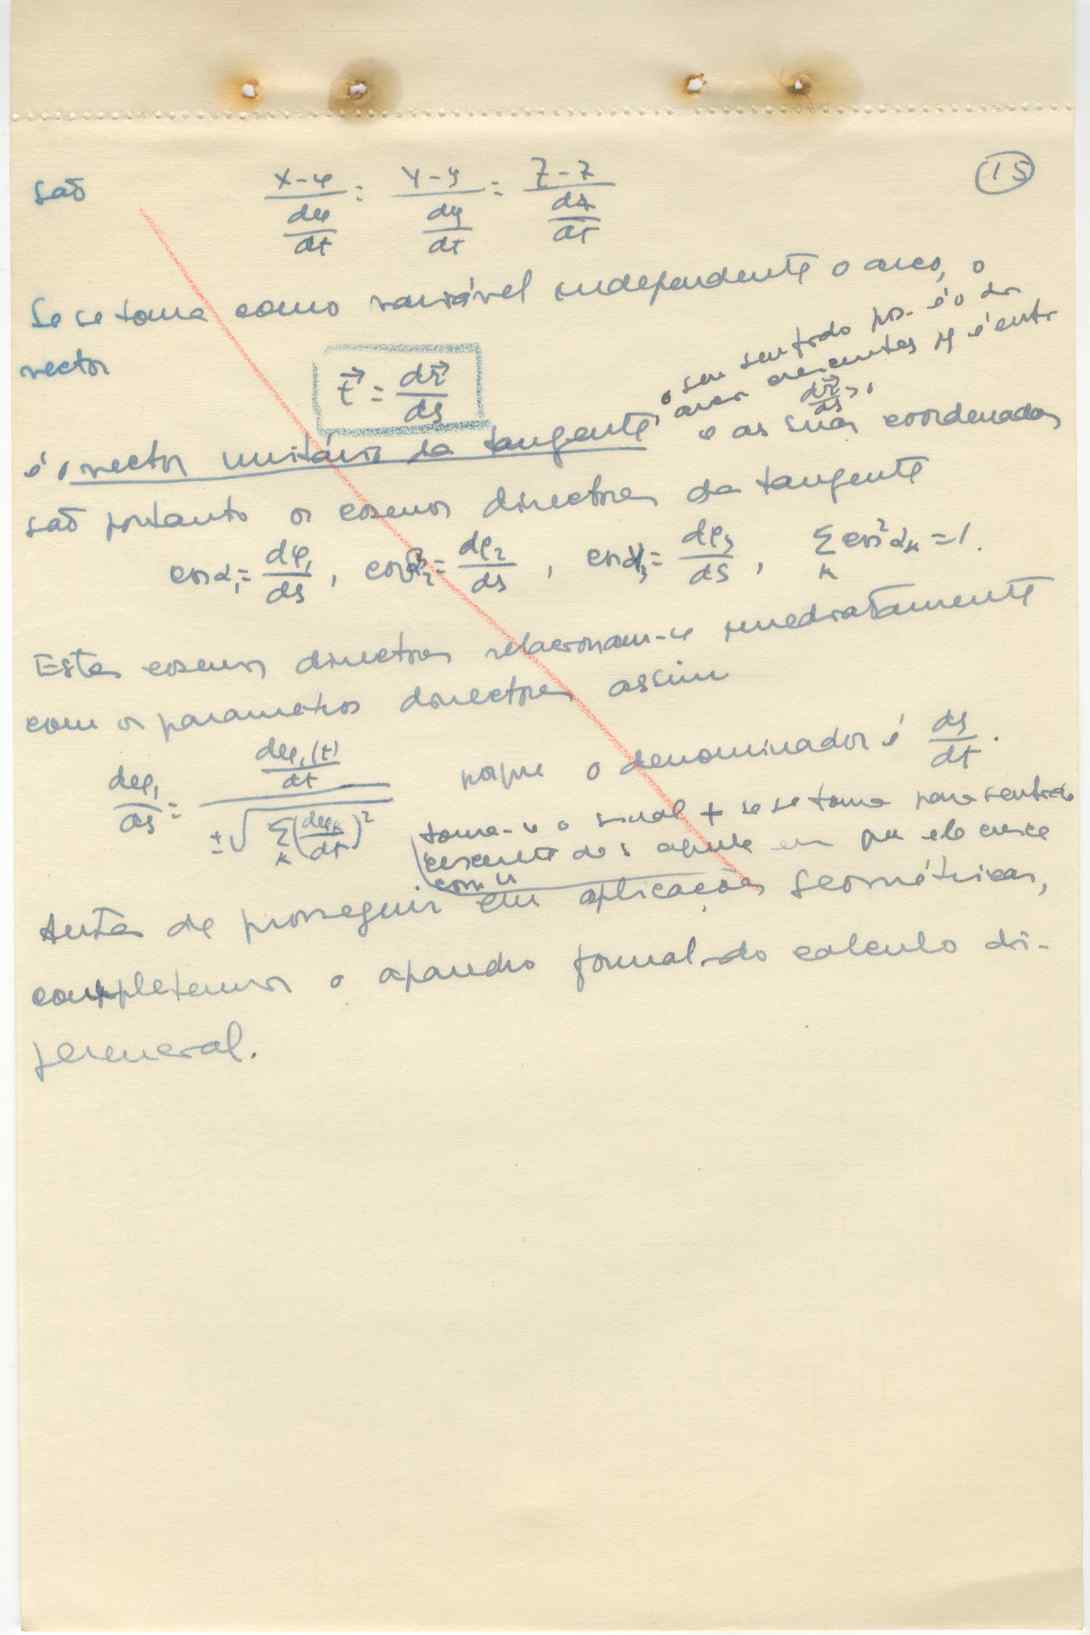 (15)
são X-φ / dφ/dt = Y-y / dy/dt = Z-z / dz/dt
Se se toma como variável independente o arco, o
vector
t⃗ = dr⃗/ds
o seu sentido pos. é o dos
arcos crescentes
dr⃗/ds > 0
é o vector unitário da tangente, e as suas coordenadas
são portanto os cosenos directores da tangente
cos α₁ = dφ₁/ds , cos α₂ = dφ₂/ds , cos α₃ = dφ₃/ds , Σₖ cos² αₖ = 1.
Estes cosenos directores relacionam-se imediatamente
com os parametros directores assim
dφ₁/ds = dφ₁(t)/dt / ±√Σₖ(dφₖ/dt)² porque o denominador é ds/dt.
toma-se o sinal + se se toma para sentido
crescente do s aquele em que ele cresce
com
Antes de prosseguir em aplicações geométricas,
completemos o aparelho formal do calculo di-
ferencial.